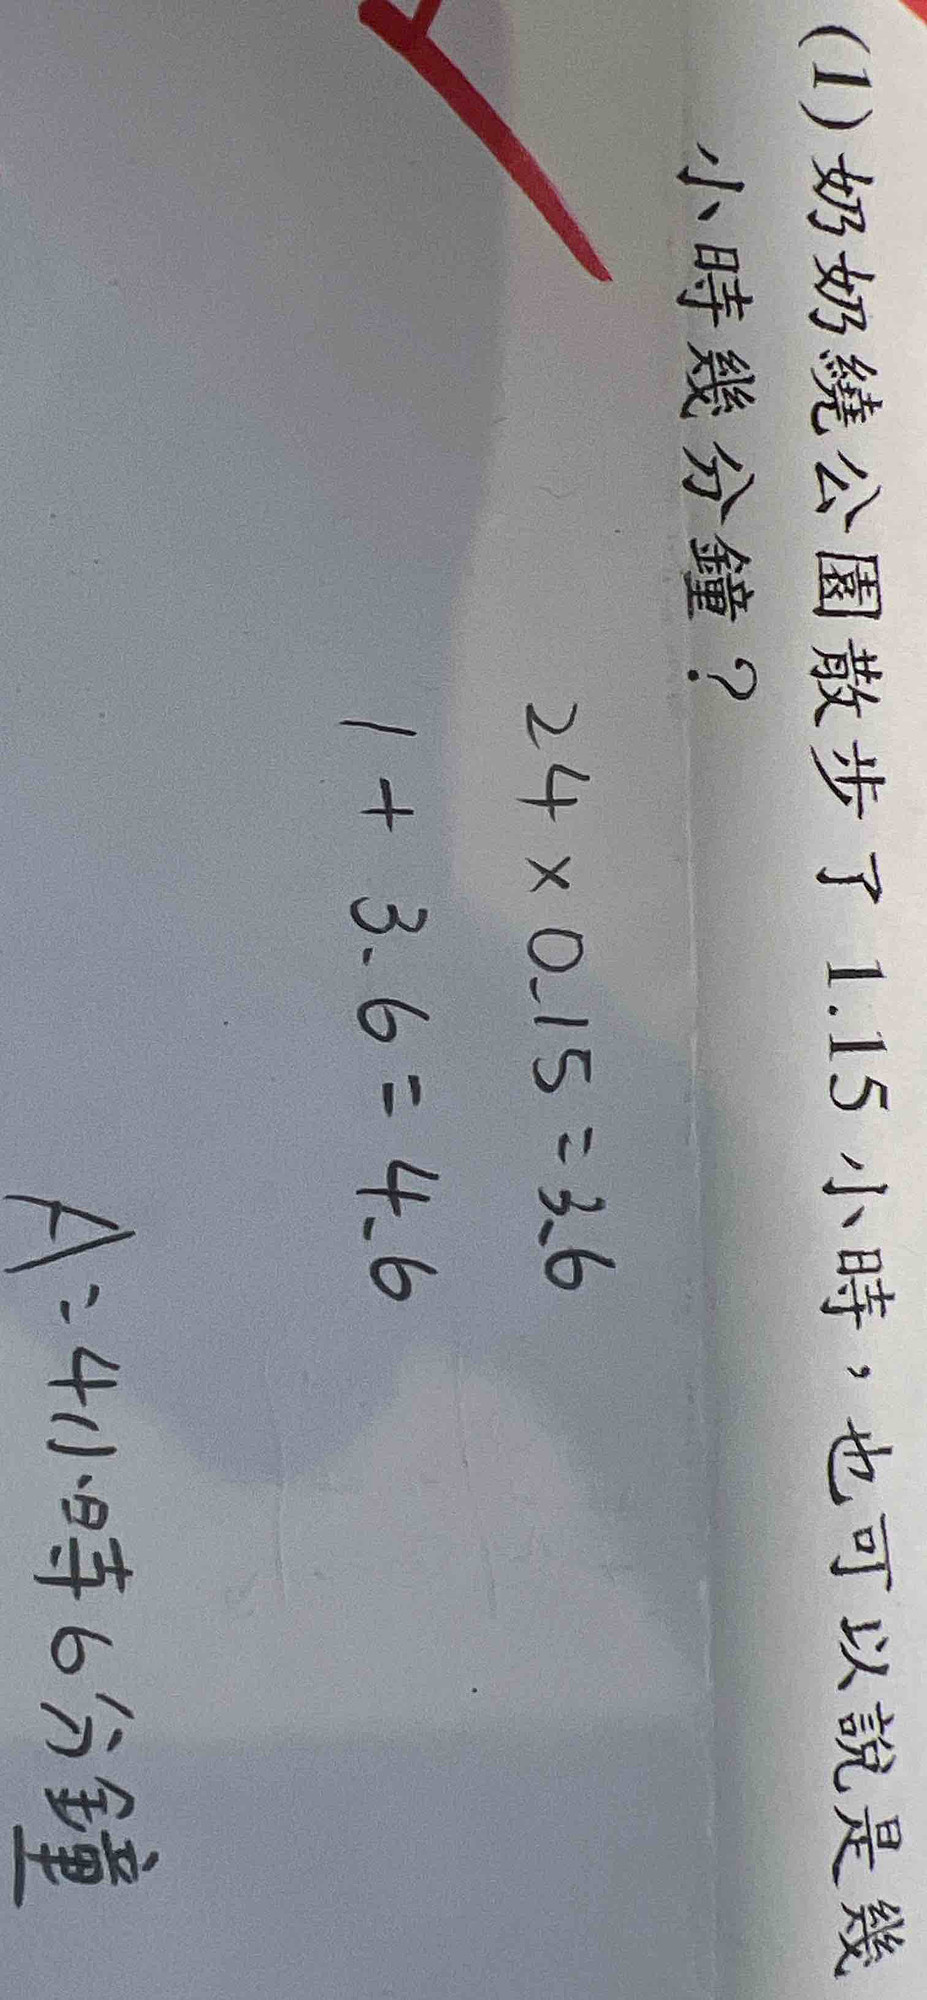 (1)奶奶繞公園散步了 1.15 小時，也可以說是幾
小時幾分鐘？
24×0.15=3.6
1+3.6=4.6
A:4小時6分鐘